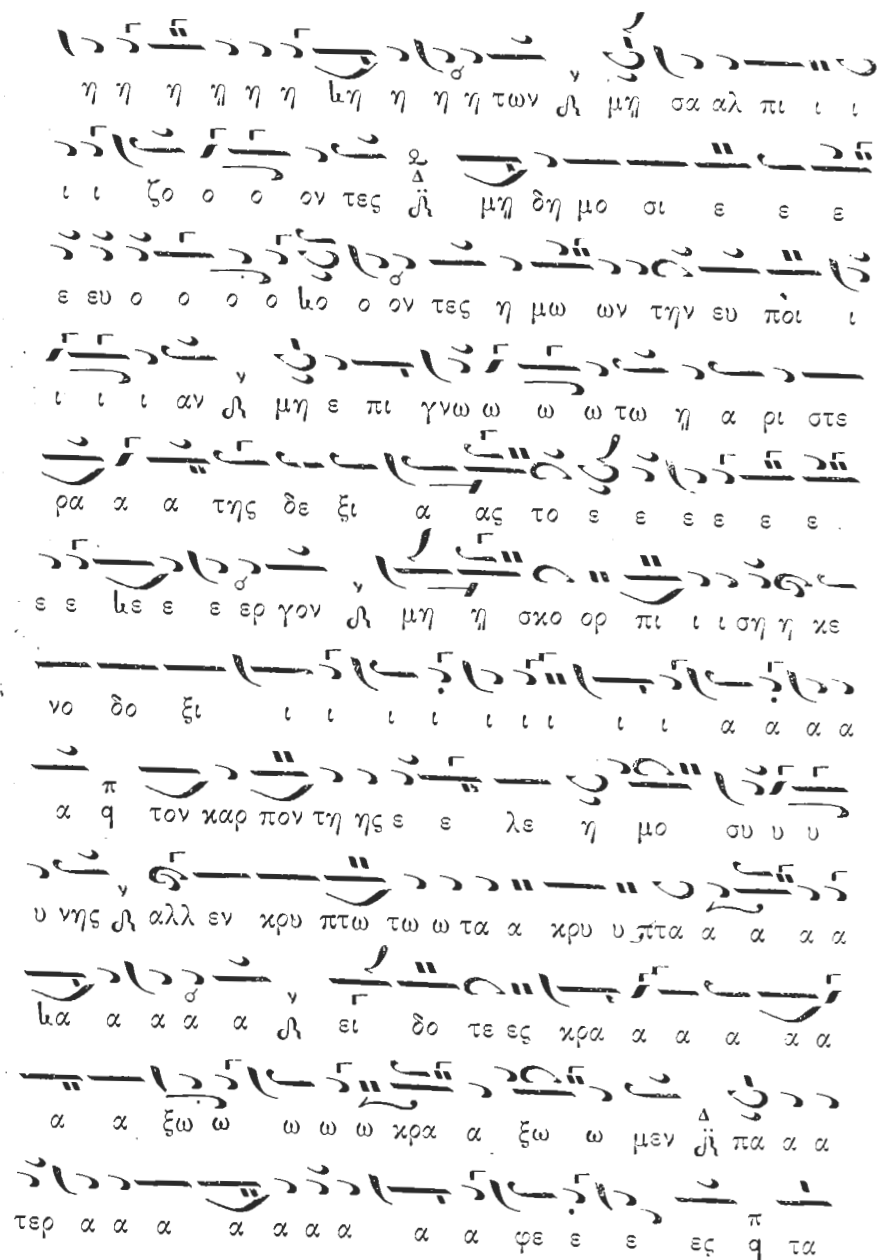 η η η ῃ η η κη η η η των μῃ σα αλ πι ι ι
ι ι ζο ο ο ον τες Δ μῃ δη μο σι ε ε ε
ε ευ ο ο ο ο κο ο ον τες η μω ων την ευ ποι ι
ι ι ι αν μη ε πι γνω ω ω ω τω ῃ α ρι στε
ρα α α της δε ξι α ας το ε ε ε ε ε ε
ε ε κε ε ε ερ γον μη ῃ σκο ορ πι ι ι ση η κε
νο δο ξι ι ι ι ι ι ι ι ι ι α α α α
α π q τον καρ πον τη ης ε ε λε η μο συ υ υ
υ νης αλλ εν κρυ πτω τω ω τα α κρυ υ πτα α α α α
κα α α α α ει δο τε ες κρα α α α α α
α α ξω ω ω ω ω κρα α ξω ω μεν Δ πα α α
τερ α α α α α α α α α φε ε ε ες π q τα